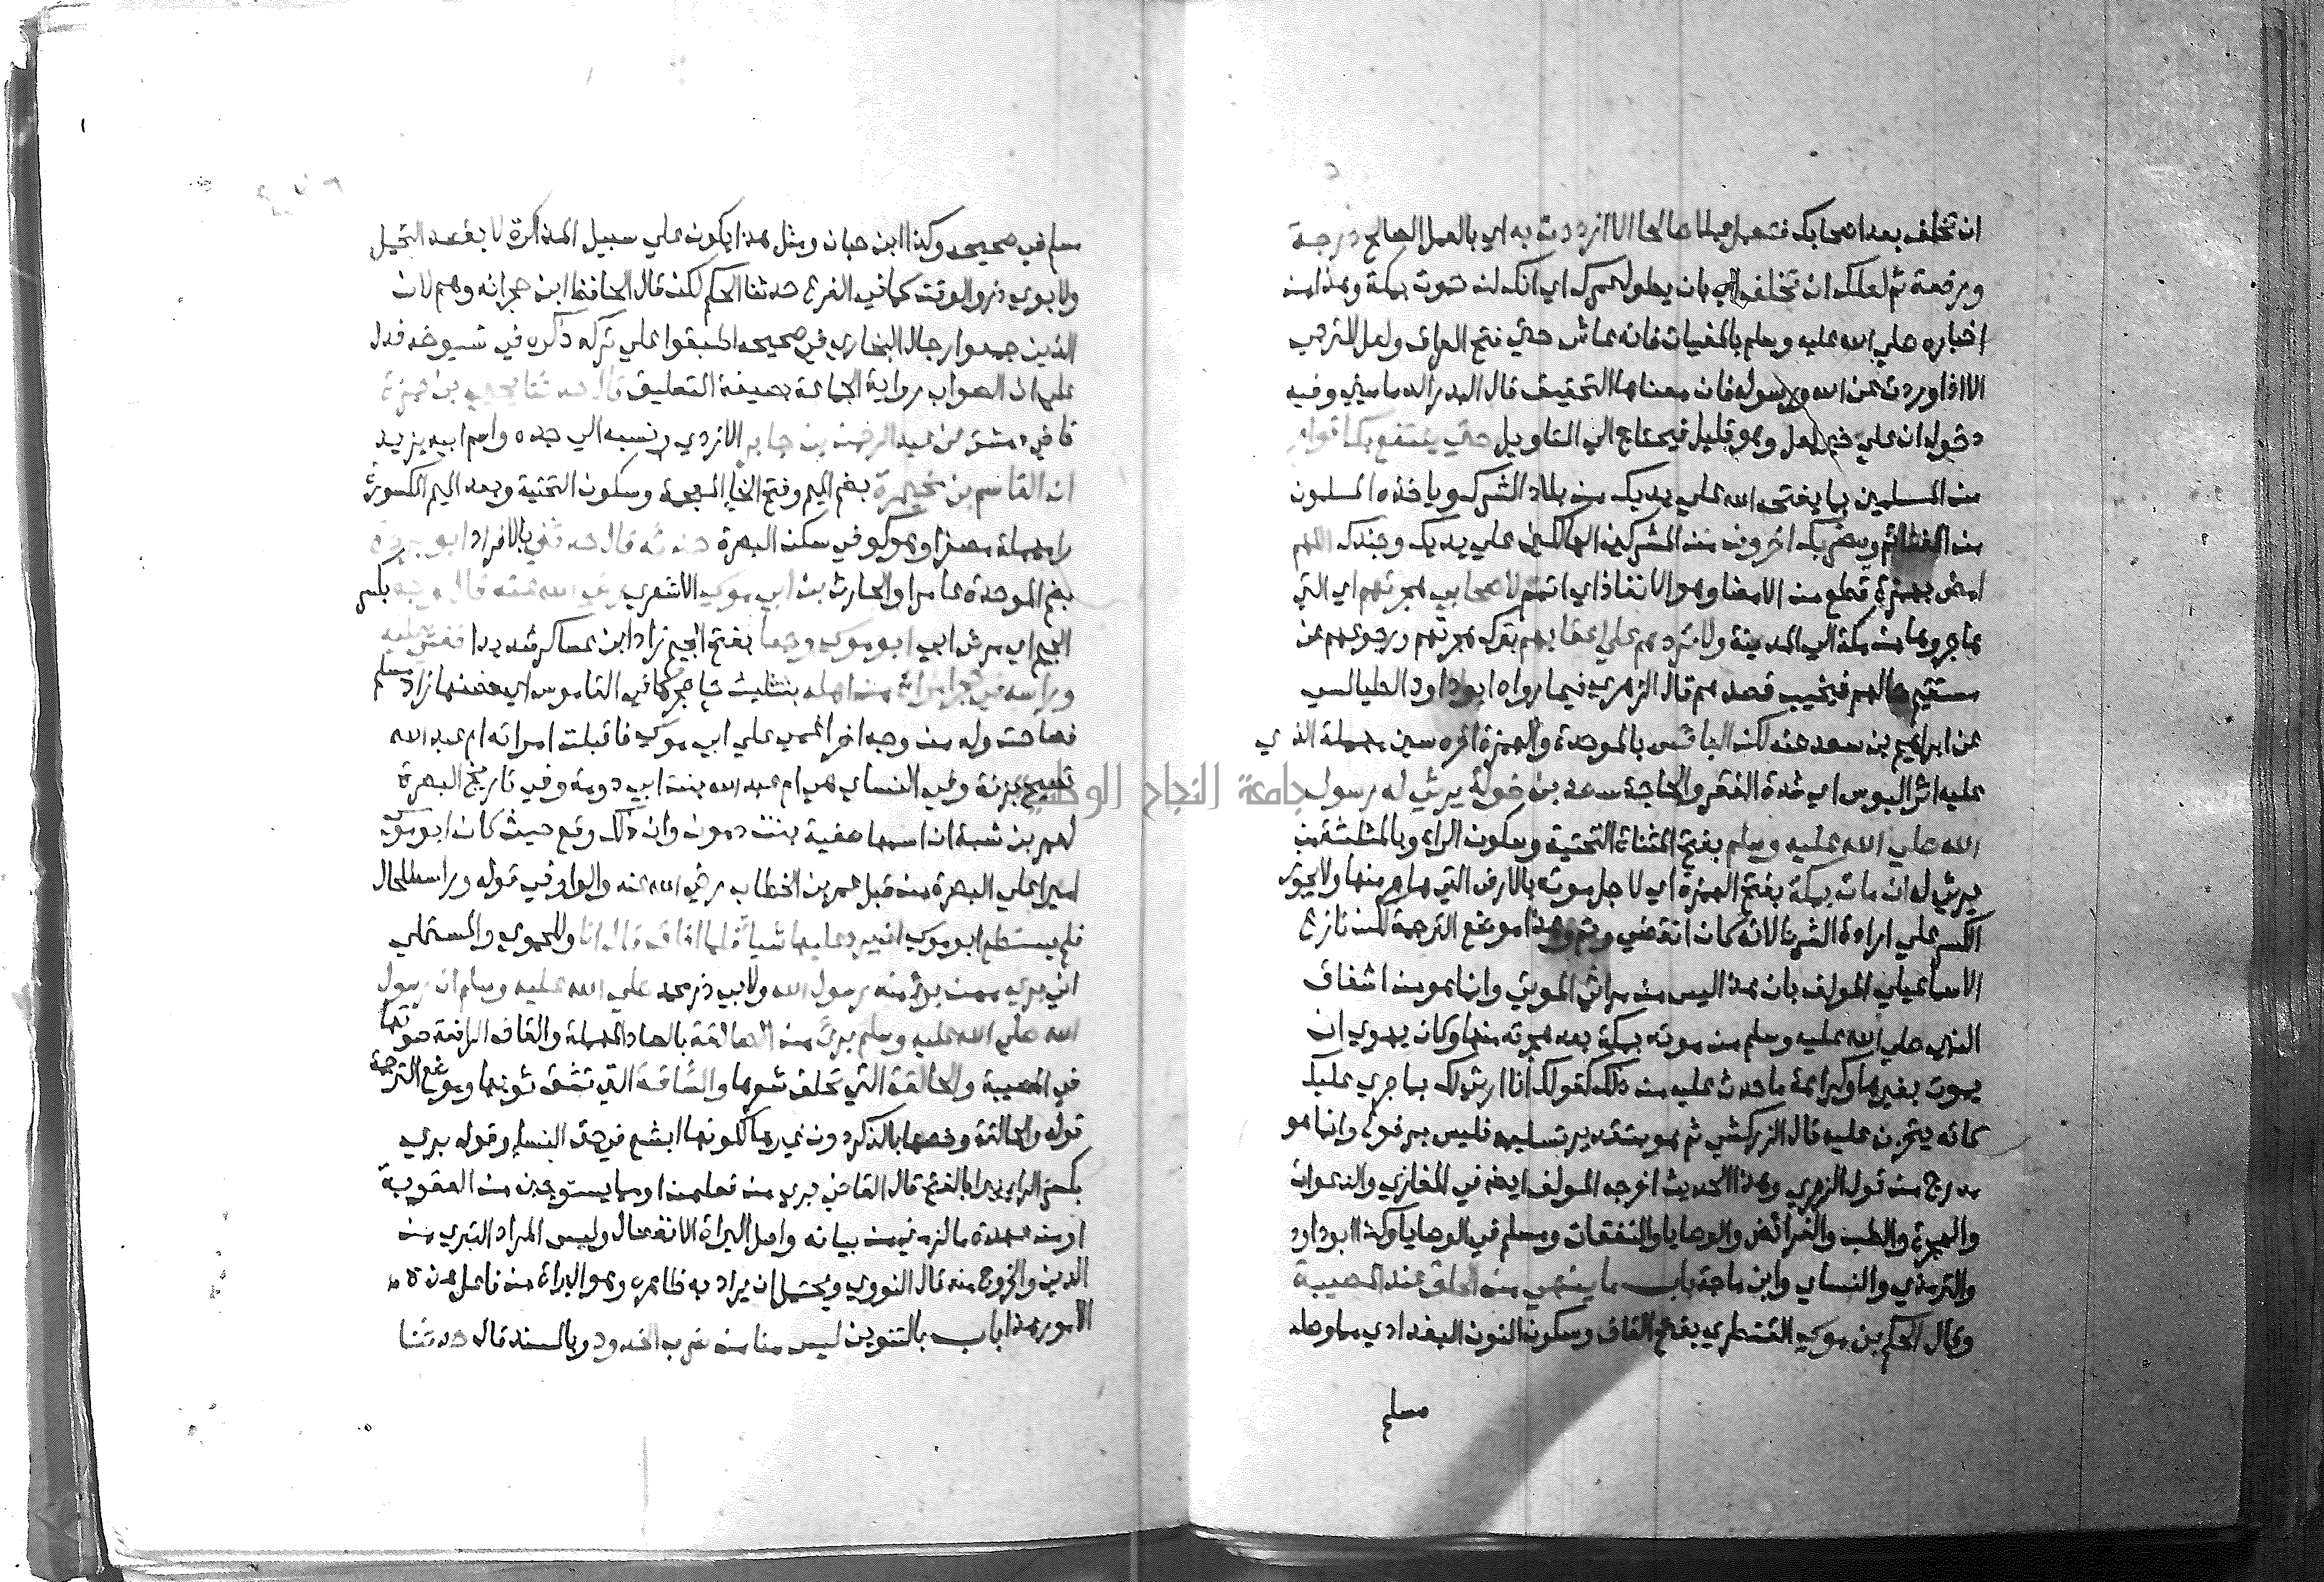 ان تخلف بعد اصحابك فتعمل عملا صالحا الا ازددت به اي بالعمل الصالح درجة
ورفعة ثم لعلك ان تخلف اي بان يطول عمرك اي انك لن تموت بمكة وهذا من
اخباره صلي الله عليه وسلم بالمغيبات فانه عاش حتي فتح العراق ولعل للترجي
الا اذا وردت عن الله ورسوله فان معناها التحقيق قال البدر الدماميني وفيه
دخول ان علي خبر لعل وهو قليل فيحتاج الي التاويل حتي ينتفع بك اقوام
من المسلمين بما يفتحه الله علي يديك من بلاد الشرك وياخذه المسلمون
من الغنائم ويضر بك اخرون من المشركين الهالكين علي يديك وجندك اللهم
امض بهمزة قطع من الامضا وهو الانفاذ اي اتمم لاصحابي هجرتهم اي التي
هاجروها من مكة الي المدينة ولا تردهم علي اعقابهم بترك هجرتهم ورجوعهم عن
مستقيم حالهم فيخيب قصدهم قال الزهري فيما رواه ابو داود الطيالسي
عن ابراهيم بن سعد عنه لكن البائس بالموحدة والهمزة اخره سين مهملة الذي
عليه اثر البوس اي شدة الفقر والحاجة سعد بن خولة يرثي له رسول
الله صلي الله عليه وسلم بفتح المثناة التحتية وسكون الراء وبالمثلثة من
يرثي له ان مات بمكة بفتح الهمزة اي لاجل موته بالارض التي هاجر منها ولا يجوز
الكسر علي ارادة الشرط لانه كان انقضي وتم وهذا موضع الترجمة لكن نازع
الاسماعيلي المولف بان هذا ليس من مراثي الموتي وانما هو من اشفاق
النبي صلي الله عليه وسلم من موته بمكة بعد هجرته منها وكان يهوي ان
يموت بغيرها وكراهة ما حدث عليه من ذلك كقولك أنا ارثي لك بما جري عليك
كانه يتحزن عليه قال الزركشي ثم هو بتقدير تسليمه فليس بمرفوع وانما هو
مدرج من قول الزهري وهذا الحديث اخرجه المولف ايضا في المغازي والدعوات
والهجرة والطب والفرائض والوصايا والنفقات ومسلم في الوصايا وكذا ابو داود
والترمذي والنساي وابن ماجة باب ما ينهي من الحلق عند المصيبة
وقال الحكم بن موسي القنطري بفتح القاف وسكون النون البغدادي مما وصله
مسلم
مسلم في صحيحه وكذا ابن حبان ومثل هذا يكون علي سبيل المذاكرة لا بقصد التحمل
ولابوي ذر والوقت كما في الفرع حدثنا الحكم لكن قال الحافظ ابن حجر انه وهم لان
الذين جمعوا رجال البخاري في صحيحه اطبقوا علي ترك ذكره في شيوخه فدل
علي ان الصواب رواية الجماعة بصيغة التعليق قال حدثنا يحيي بن حمزة
قاضي دمشق عن عبد الرحمن بن جابر الازدي ونسبه الي جده واسم ابيه يزيد
ان القاسم بن مخيمرة بضم الميم وفتح الخا المعجمة وسكون التحتية وبعد الميم المكسورة
را مهملة مصغرا وهو كوفي سكن البصرة حدثه قال حدثني بالافراد ابو بردة
بضم الموحدة عامرا والحارث بن ابي موسي الاشعري رضي الله عنه قال وجع بكسر
الجيم اي مرض ابي ابو موسي وجعا بفتح الجيم زاد ابن عساكر شديدا فغشي عليه
وراسه في حجر امراة من اهله بتثليث حا حجر كما في القاموس اي حضنها زاد مسلم
فصاحت وله من وجه اخر اغمي علي ابي موسي فاقبلت امراته ام عبد الله
تصيح برنة وفي النساي هي ام عبد الله بنت ابي دومة وفي تاريخ البصرة
لعمر بن شبة ان اسمها صفية بنت دمون وان ذلك وقع حيث كان ابو موسي
اميرا علي البصرة من قبل عمر بن الخطاب رضي الله عنه والواو في قوله وراسه للحال
فلم يستطع ابو موسي ان يرد عليها شيا فلما افاق قال انا وللحموي والمستملي
اني بري ممن بري منه رسول الله ولابي ذر محمد صلي الله عليه وسلم ان رسول
الله صلي الله عليه وسلم بري من الصالقة بالصاد المهملة والقاف الرافعة صوتها
في المصيبة والحالقة التي تحلق شعرها والشاقة التي تشق ثوبها وموضع الترجمة
قوله والحالقة وخصها بالذكر دون غيرها لكونها ابشع في حق النساء وقوله بري
بكسر الراي يبرا بالفتح قال القاضي بري من فعلهن او مما يستوجبن من العقوبة
او من عهدة ما لزمني من بيانه واصل البراة الانفصال وليس المراد التبري من
الدين والخروج منه قال النووي ويحتمل ان يراد به ظاهره وهو البراة من فاعل هذه
الامور هذا باب بالتنوين ليس منا من ضرب الخدود وبالسند قال حدثنا